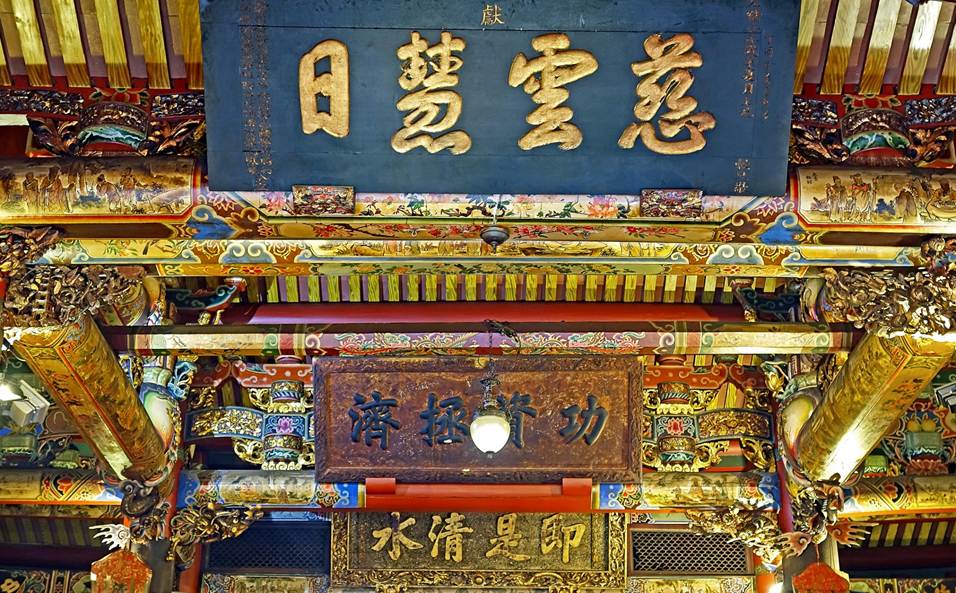 獻
慈雲慧日
功資拯濟
即是清水